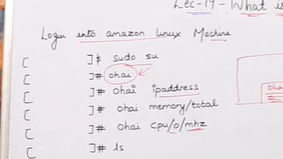 Lec-17 - What is
Login into amazon linux Machine
[ ]$ sudo su
[ ]# ohai
[ ]# ohai ipaddress
[ ]# ohai memory/total
[ ]# ohai cpu/0/mhz
[ ]# ls